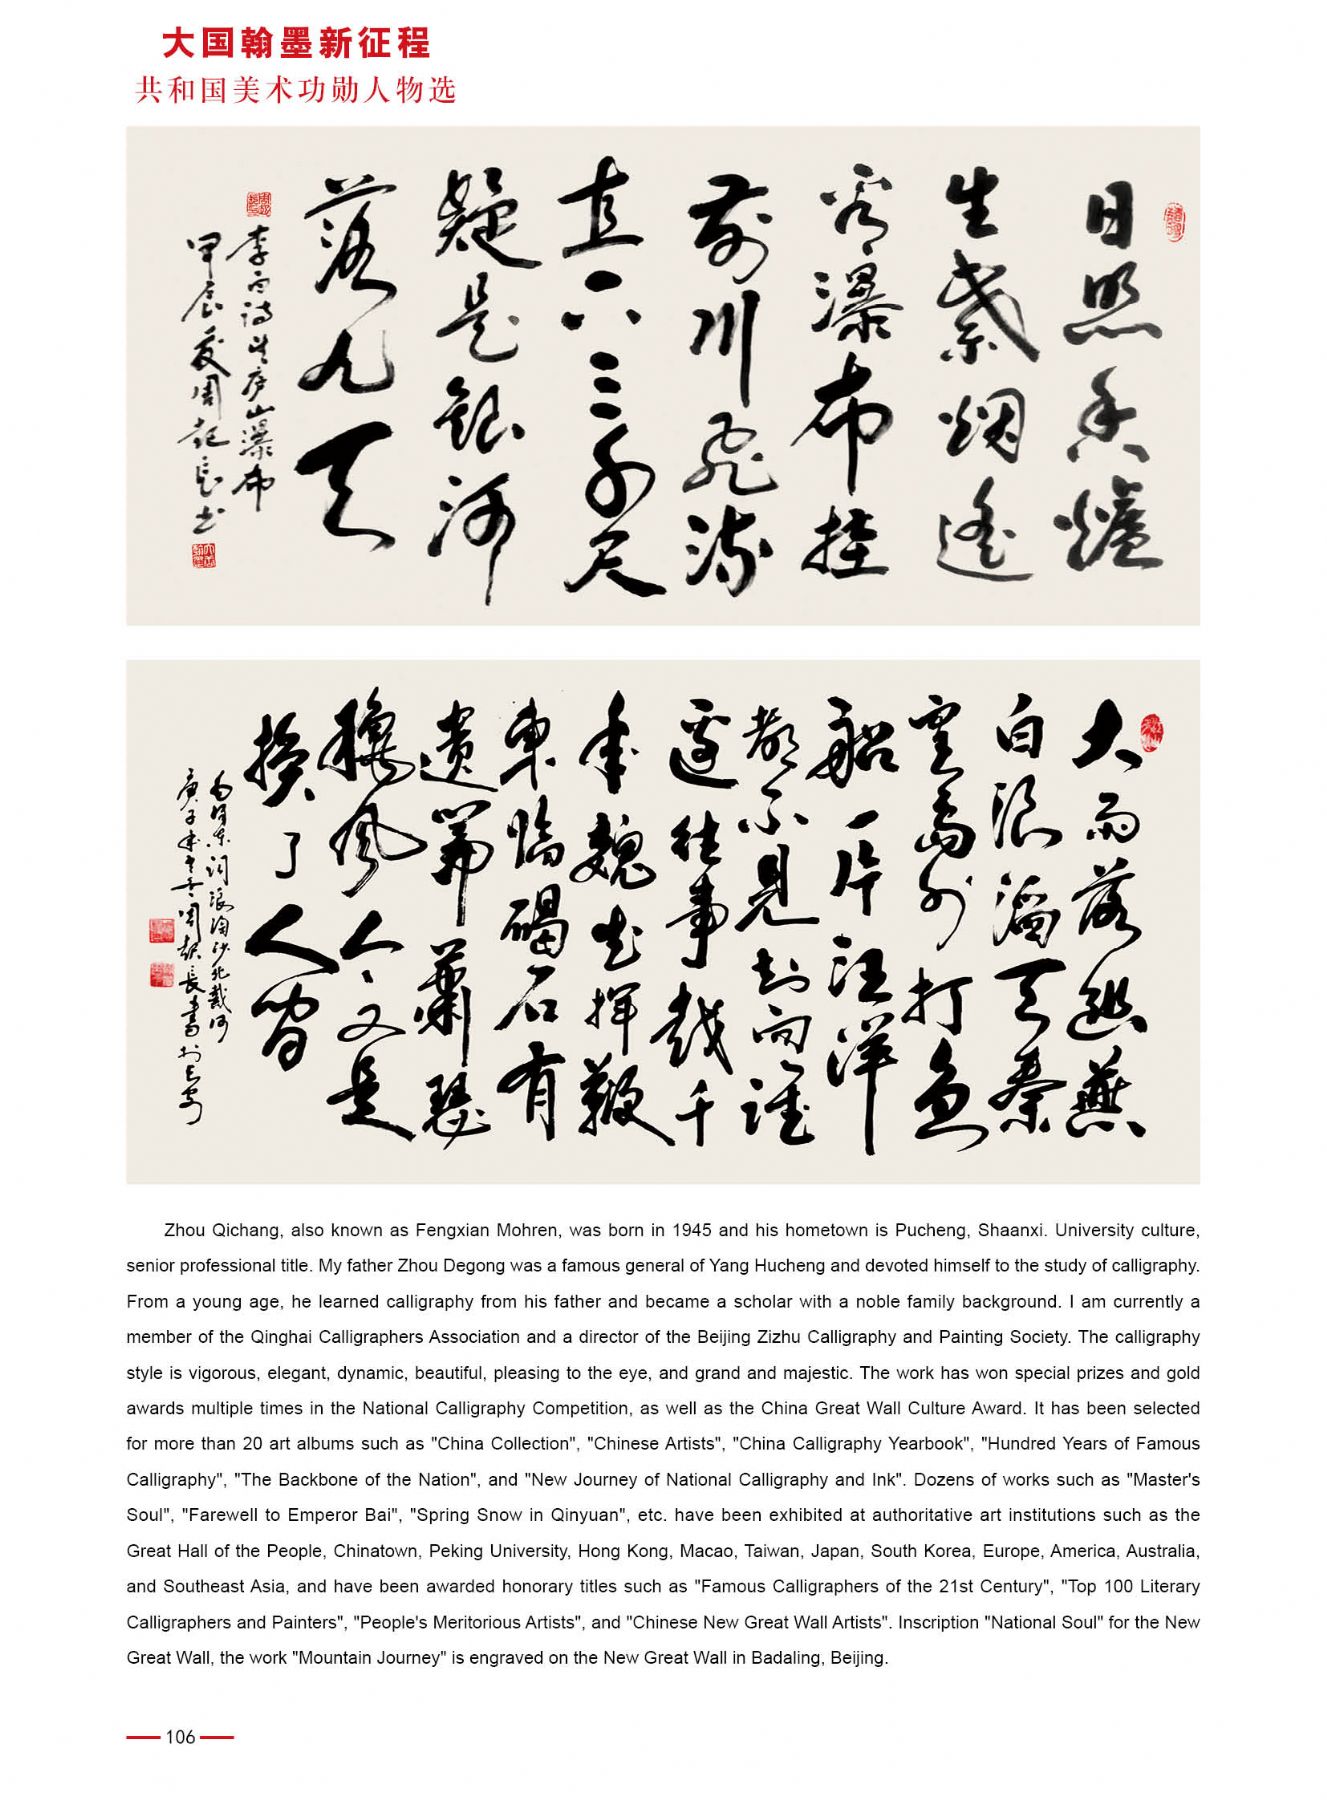 大国翰墨新征程
共和国美术功勋人物选
日照香爐
生紫烟遙
看瀑布挂
前川飛流
直下三千尺
疑是銀河
落九天
李白詩望廬山瀑布
甲辰夏周起長书
大雨落幽燕
白浪滔天秦
皇島外打魚
船一片汪洋
都不見知向誰
邊往事越千
年魏武揮鞭
東臨碣石有
遺篇蕭瑟
龝風今又是
換了人間
毛澤東詞浪淘沙北戴河
庚子年之冬周起長書於長安
Zhou Qichang, also known as Fengxian Mohren, was born in 1945 and his hometown is Pucheng, Shaanxi. University culture,
senior professional title. My father Zhou Degong was a famous general of Yang Hucheng and devoted himself to the study of calligraphy.
From a young age, he learned calligraphy from his father and became a scholar with a noble family background. I am currently a
member of the Qinghai Calligraphers Association and a director of the Beijing Zizhu Calligraphy and Painting Society. The calligraphy
style is vigorous, elegant, dynamic, beautiful, pleasing to the eye, and grand and majestic. The work has won special prizes and gold
awards multiple times in the National Calligraphy Competition, as well as the China Great Wall Culture Award. It has been selected
for more than 20 art albums such as "China Collection", "Chinese Artists", "China Calligraphy Yearbook", "Hundred Years of Famous
Calligraphy", "The Backbone of the Nation", and "New Journey of National Calligraphy and Ink". Dozens of works such as "Master's
Soul", "Farewell to Emperor Bai", "Spring Snow in Qinyuan", etc. have been exhibited at authoritative art institutions such as the
Great Hall of the People, Chinatown, Peking University, Hong Kong, Macao, Taiwan, Japan, South Korea, Europe, America, Australia,
and Southeast Asia, and have been awarded honorary titles such as "Famous Calligraphers of the 21st Century", "Top 100 Literary
Calligraphers and Painters", "People's Meritorious Artists", and "Chinese New Great Wall Artists". Inscription "National Soul" for the New
Great Wall, the work "Mountain Journey" is engraved on the New Great Wall in Badaling, Beijing.
106